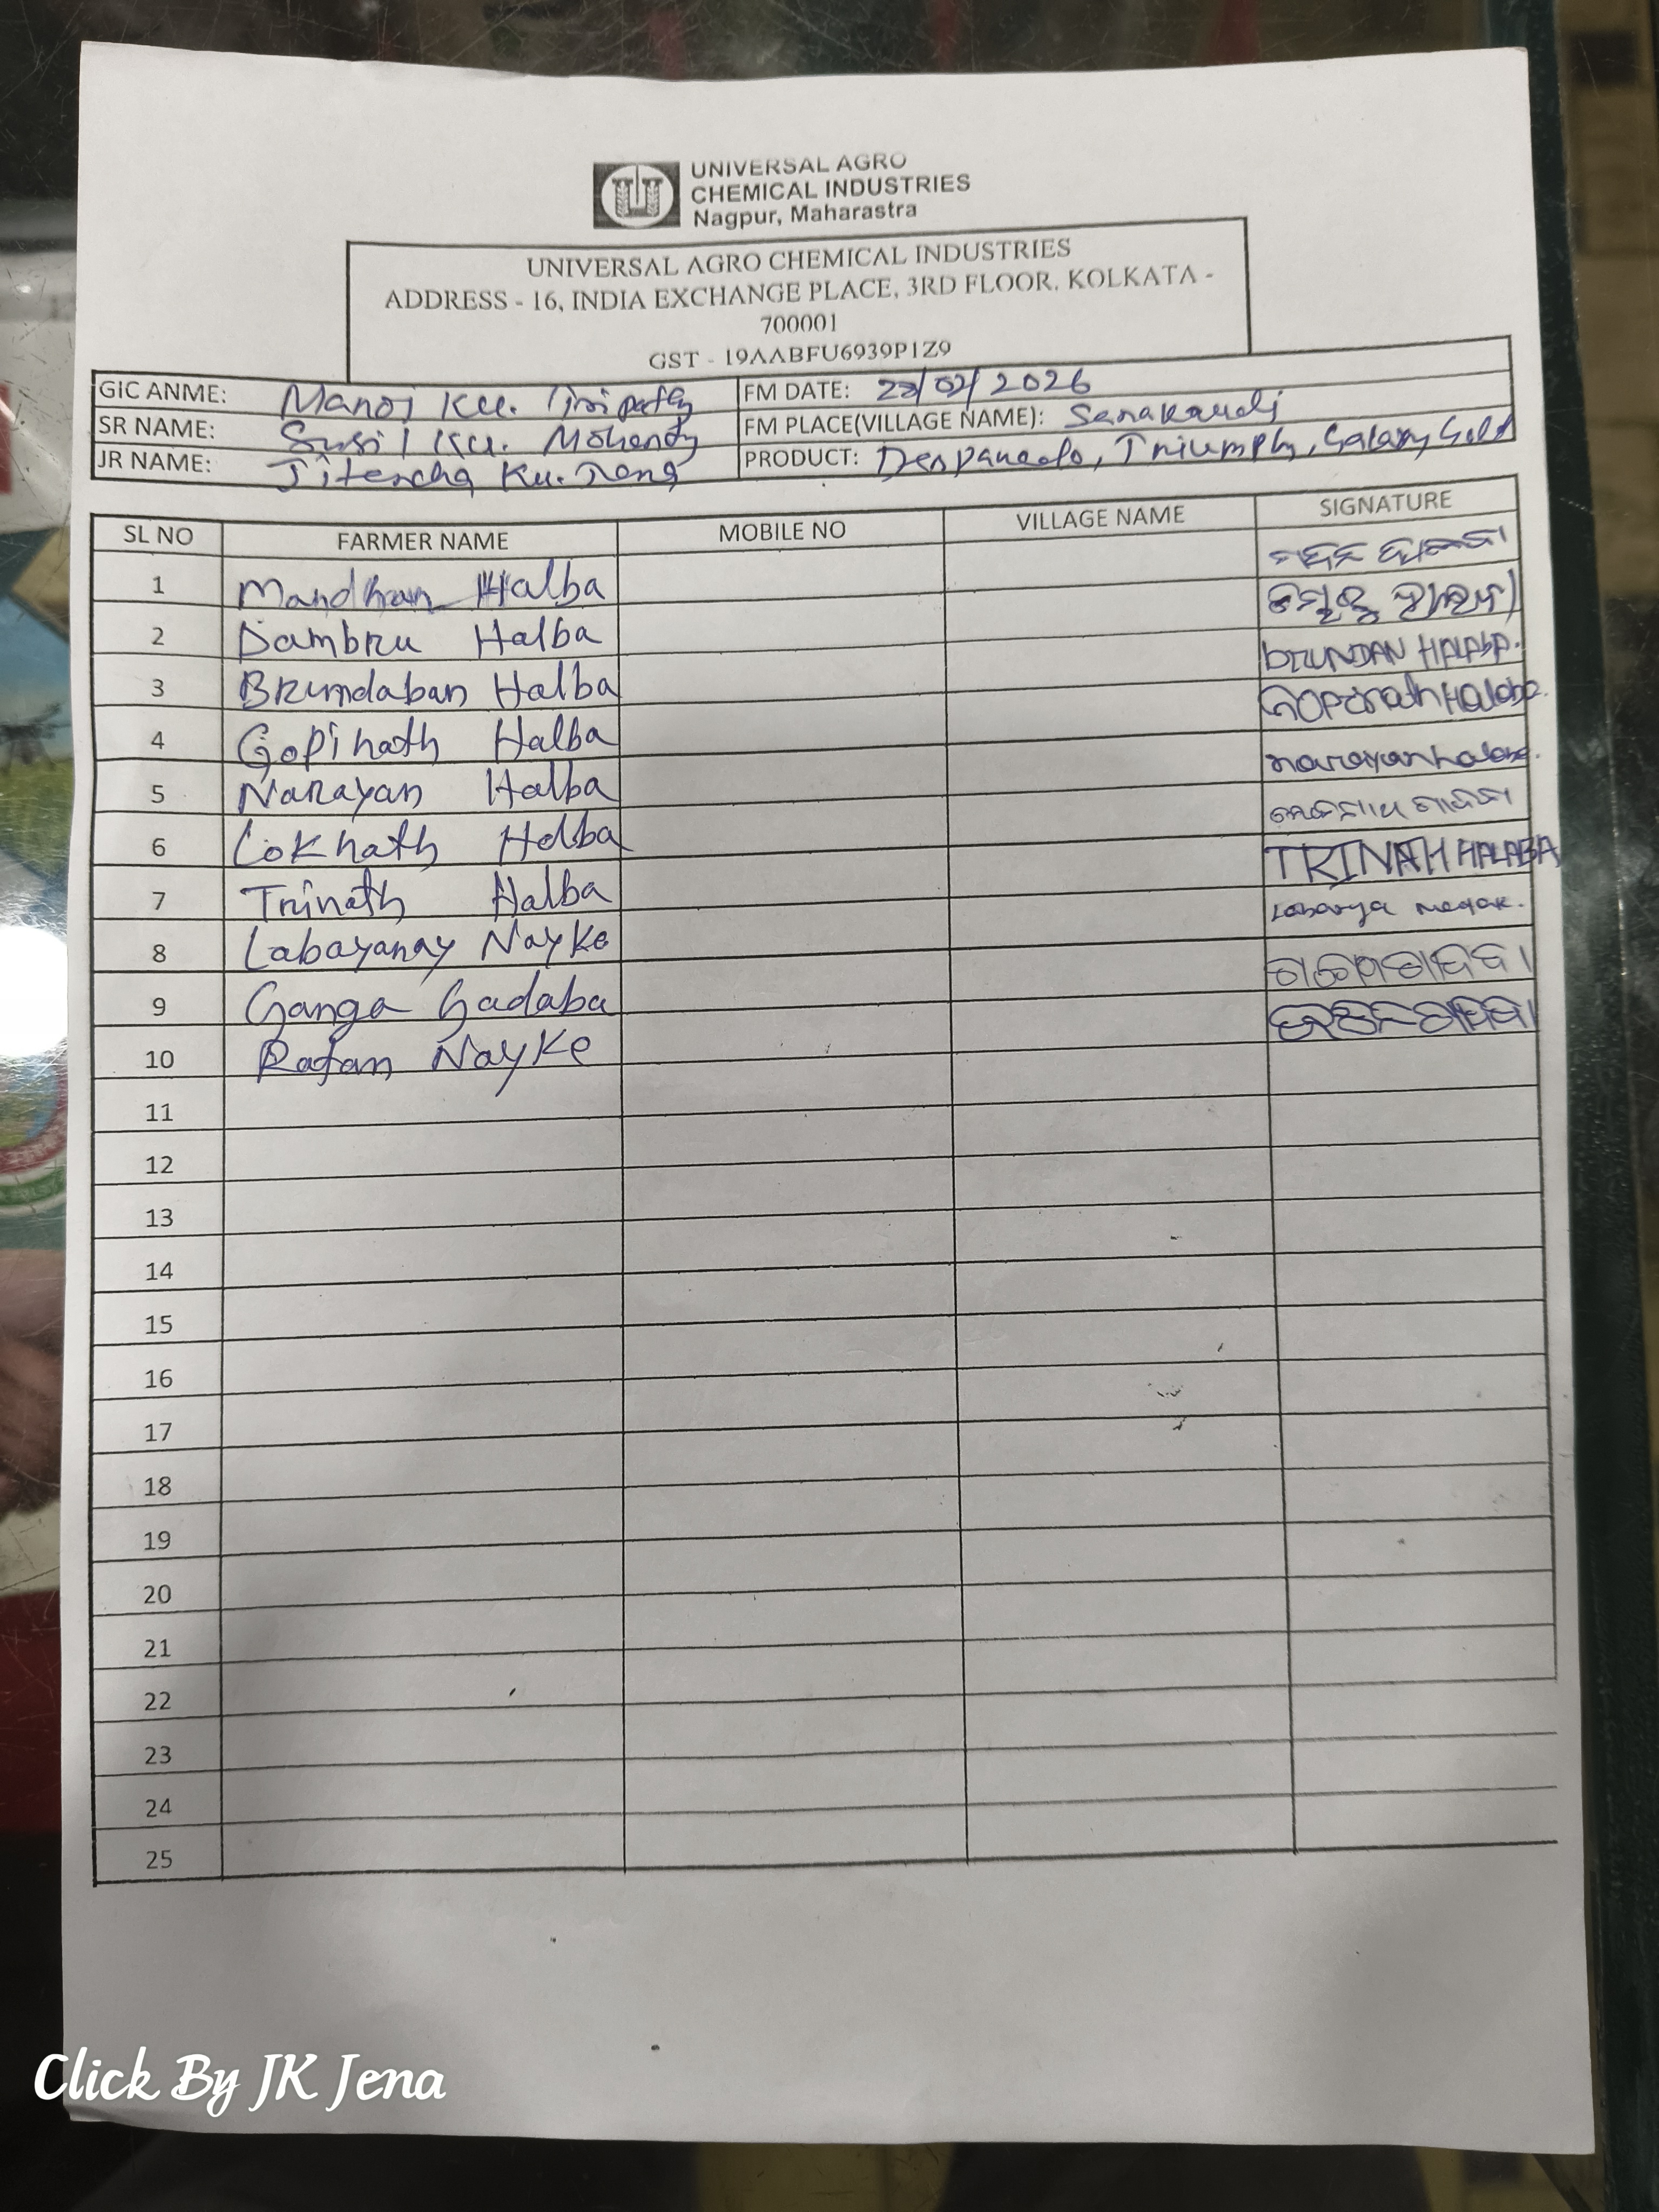 UNIVERSAL AGRO
CHEMICAL INDUSTRIES
Nagpur, Maharastra
UNIVERSAL AGRO CHEMICAL INDUSTRIES
ADDRESS - 16, INDIA EXCHANGE PLACE, 3RD FLOOR, KOLKATA -
700001
GST - 19AABFU6939P1Z9
GIC ANME: Manoj Ku. Tripathy FM DATE: /02/2026
SR NAME: Susil Ku. Mohanty FM PLACE(VILLAGE NAME):
JR NAME: Ku. Jena PRODUCT: Triumph, Galaxy Gold
SL NO FARMER NAME MOBILE NO VILLAGE NAME SIGNATURE
1 Mandhan Halba
2 Dambru Halba
3 Brundaban Halba BRUNDAN HALABA.
4 Gopinath Halba Gopinath Halaba.
5 Narayan Halba narayan halaba.
6 Loknath Halba
7 Trinath Halba TRINATH HALABA
8 Labayanay Nayke
9 Ganga Gadaba
10 Ratan Nayke
11
12
13
14
15
16
17
18
19
20
21
22
23
24
25
Click By JK Jena